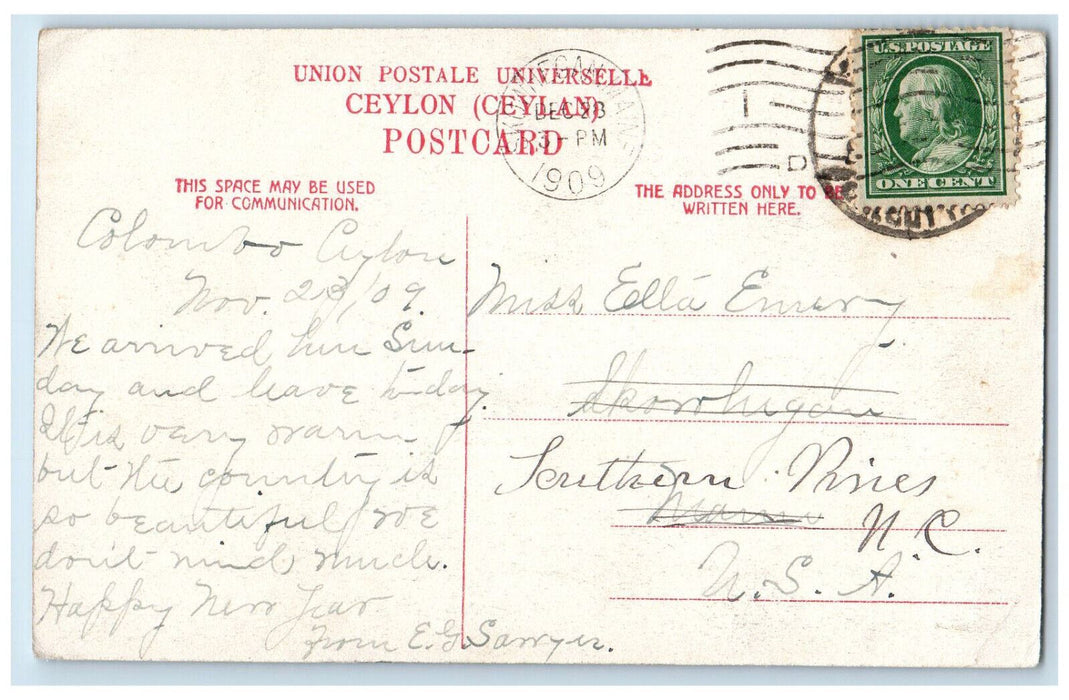 UNION POSTALE UNIVERSELLE
CEYLON (CEYLAN)
POSTCARD
SKOWHEGAN, MAINE
DEC 28
3 - PM
1909
1
D
U.S. POSTAGE
ONE CENT
THIS SPACE MAY BE USED
FOR COMMUNICATION.
THE ADDRESS ONLY TO BE
WRITTEN HERE.
Colombo Ceylon
Nov. 23/09.
We arrived here Sun-
day and leave to-day.
It is very warm
but the country is
so beautiful we
don't mind much.
Happy New Year
from E. G. Sawyer.
Miss Ella Emery
Skowhegan
Southern Pines
Maine
N. C.
U. S. A.